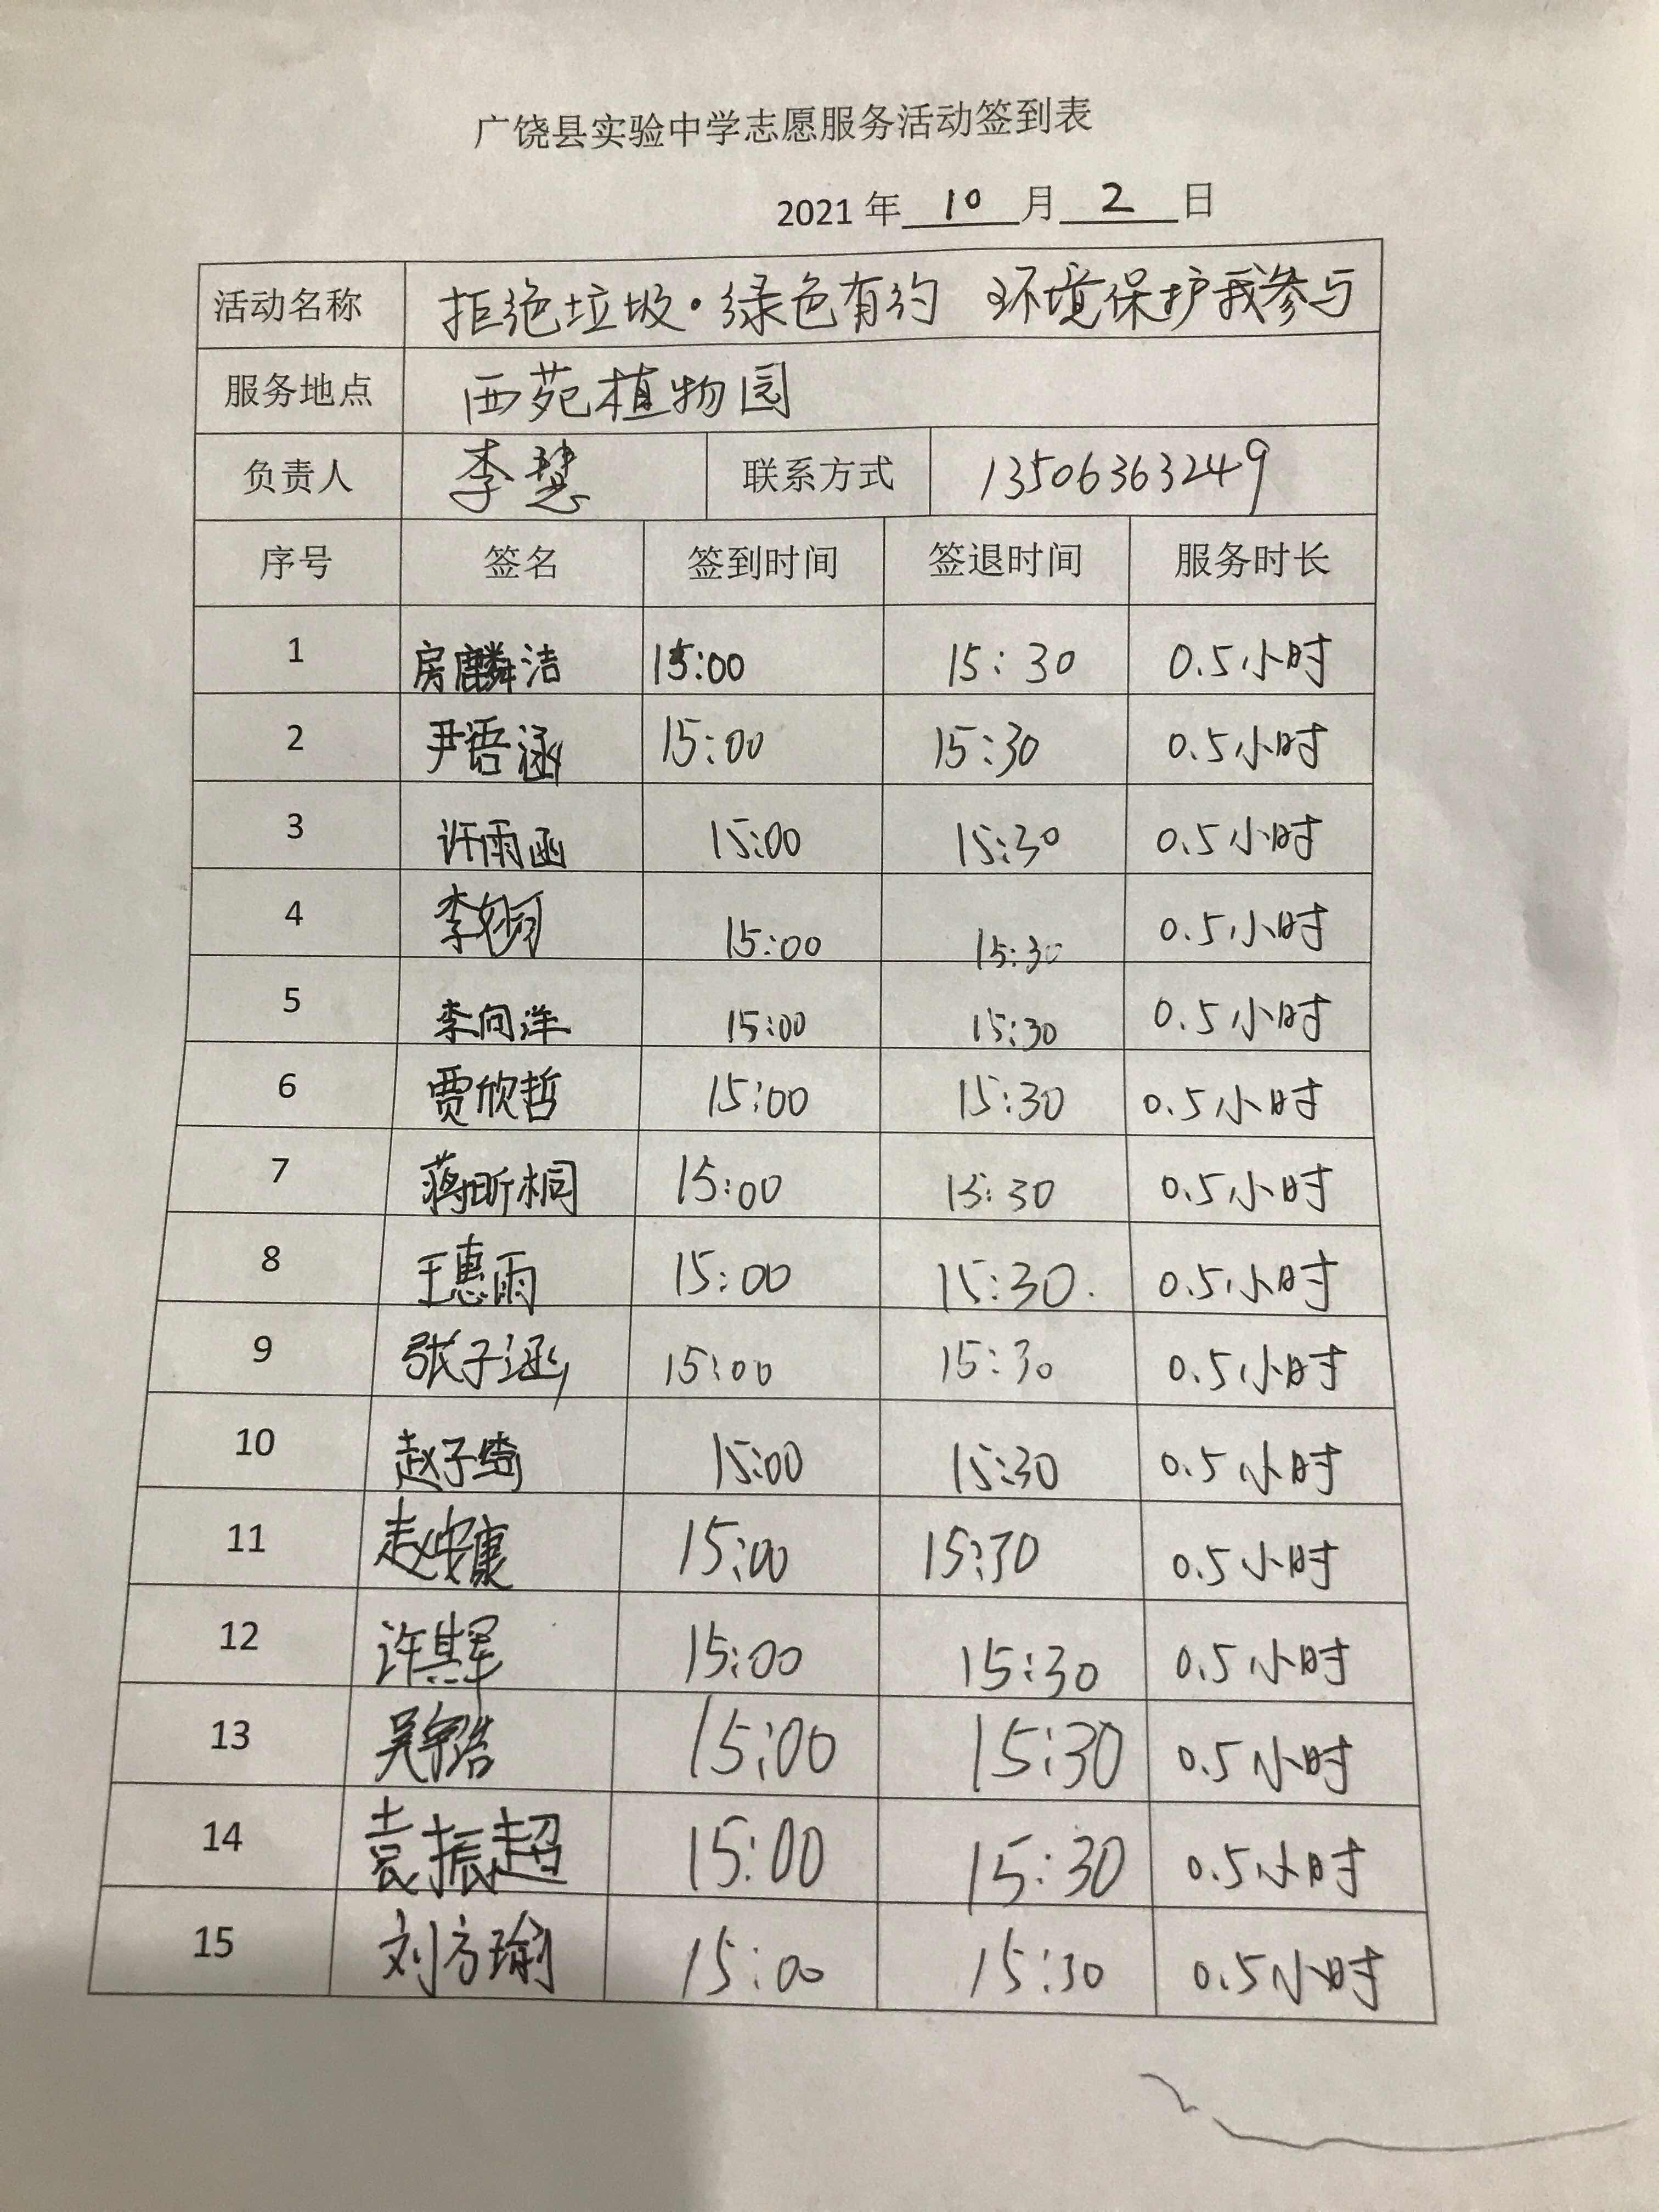 广饶县实验中学志愿服务活动签到表
2021 年 10 月 2 日
活动名称 拒绝垃圾·绿色有约 环境保护我参与
服务地点 西苑植物园
负责人 李慧 联系方式 13506363249
序号 签名 签到时间 签退时间 服务时长
1 房麟洁 15:00 15:30 0.5小时
2 尹语涵 15:00 15:30 0.5小时
3 许雨函 15:00 15:30 0.5小时
4 李 15:00 15:30 0.5小时
5 李向洋 15:00 15:30 0.5小时
6 贾欣哲 15:00 15:30 0.5小时
7 蒋昕桐 15:00 15:30 0.5小时
8 王惠雨 15:00 15:30. 0.5小时
9 张子涵 15:00 15:30 0.5小时
10 赵子绮 15:00 15:30 0.5小时
11 赵安康 15:00 15:30 0.5小时
12 许其军 15:00 15:30 0.5小时
13 吴宇浩 15:00 15:30 0.5小时
14 袁振超 15:00 15:30 0.5小时
15 刘方瑜 15:00 15:30 0.5小时